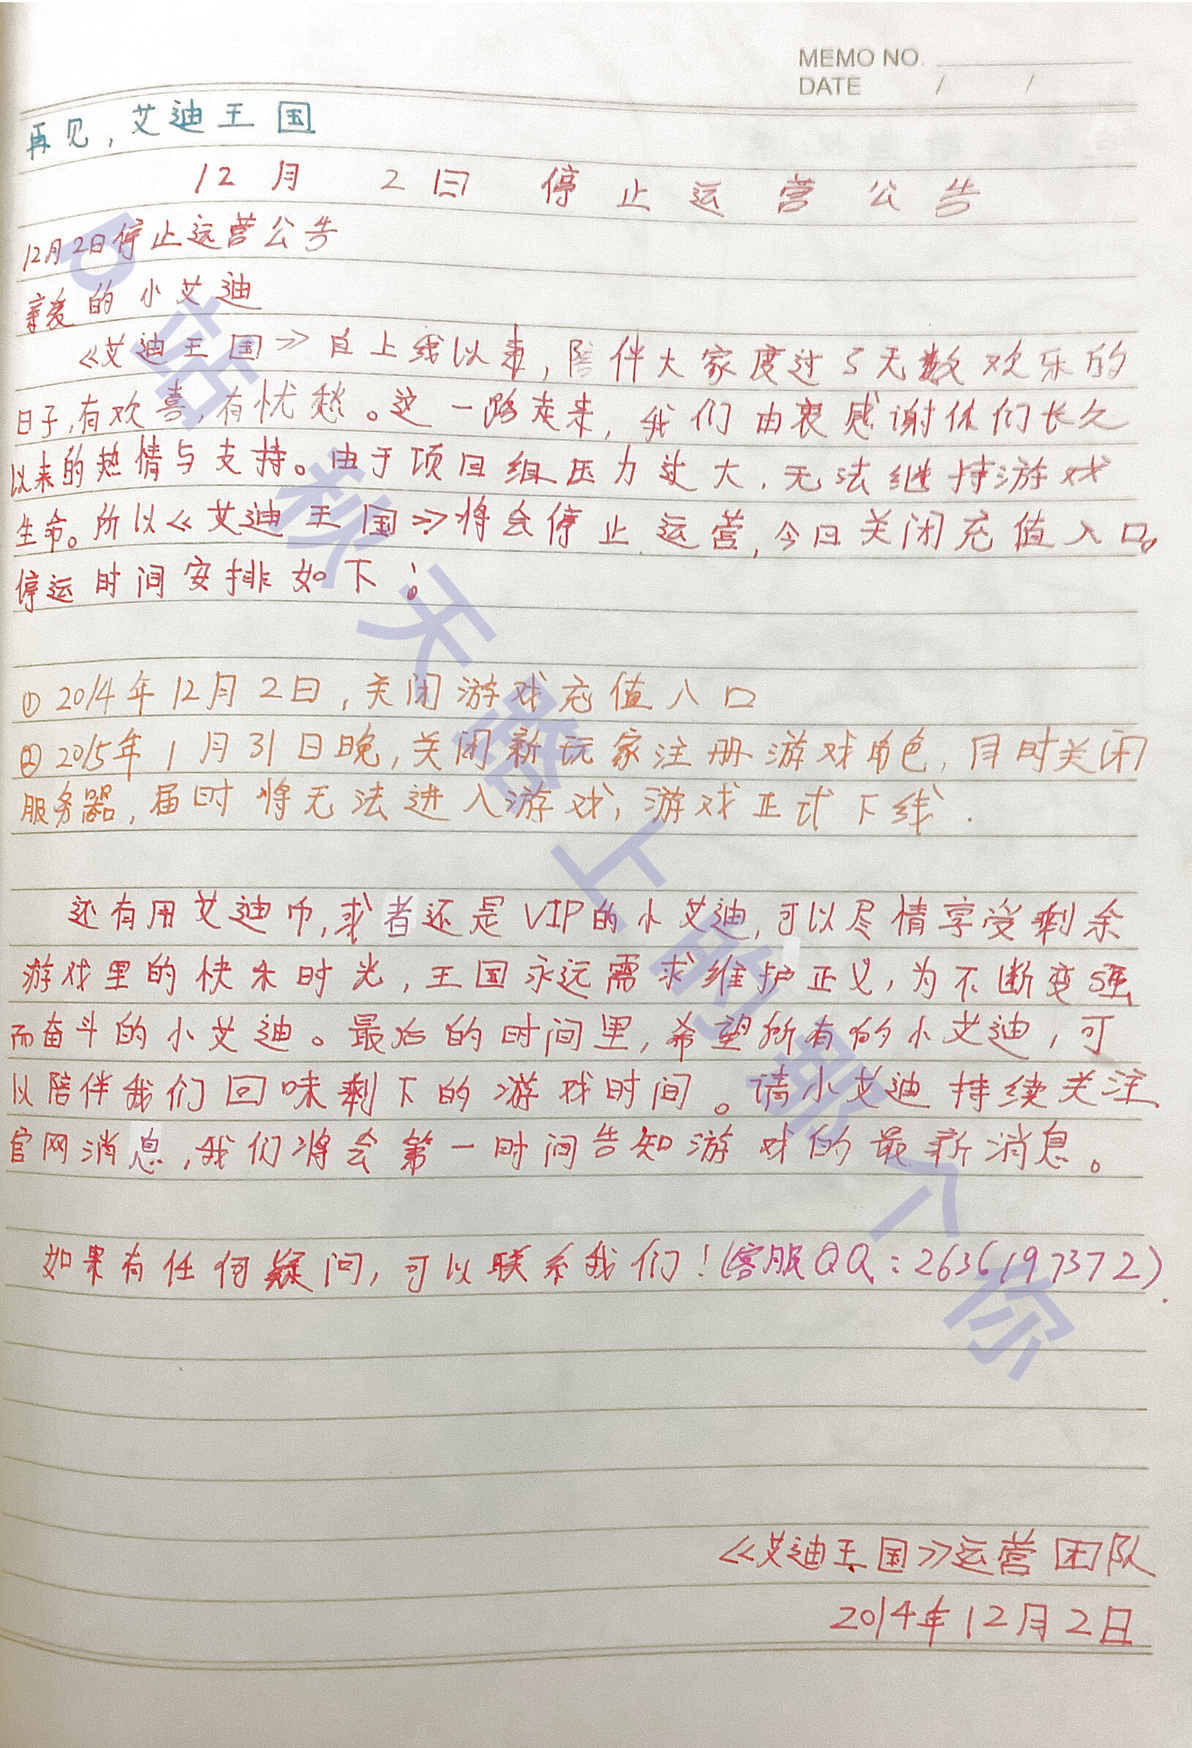 MEMO NO.
DATE / /
再见，艾迪王国
12月 2日 停止运营公告
12月2日停止运营公告
亲爱的小艾迪
《艾迪王国》自上线以来，陪伴大家度过了无数欢乐的
日子，有欢喜，有忧愁。这一路走来，我们由衷感谢你们长久
以来的热情与支持。由于项目组压力过大，无法继持游戏
生命。所以《艾迪王国》将会停止运营，今日关闭充值入口。
停运时间安排如下：
① 2014年12月2日，关闭游戏充值入口
② 2015年1月31日晚，关闭新玩家注册游戏角色，同时关闭
服务器，届时将无法进入游戏，游戏正式下线.
还有用艾迪币，或者还是VIP的小艾迪，可以尽情享受剩余
游戏里的快乐时光，王国永远需求维护正义，为不断变强
而奋斗的小艾迪。最后的时间里，希望所有的小艾迪，可
以陪伴我们回味剩下的游戏时间。请小艾迪持续关注
官网消息，我们将会第一时间告知游戏的最新消息。
如果有任何疑问，可以联系我们！(客服QQ：2636197372).
《艾迪王国》运营团队
2014年12月2日
P站 秋天路上的那个你